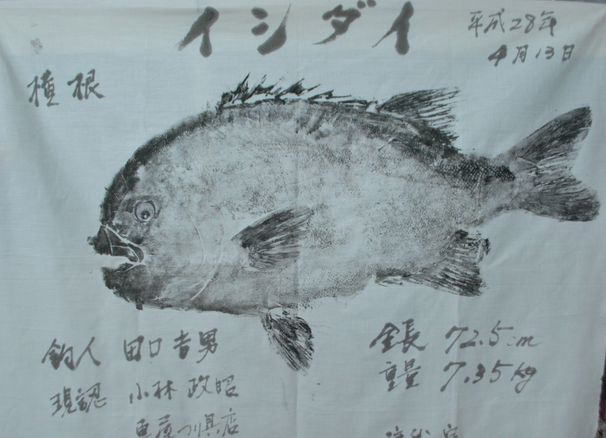 イシダイ
平成28年
4月13日
横根
釣人 田口吉男
現認 小林政昭
釣具店
全長 72.5cm
重量 7.35kg